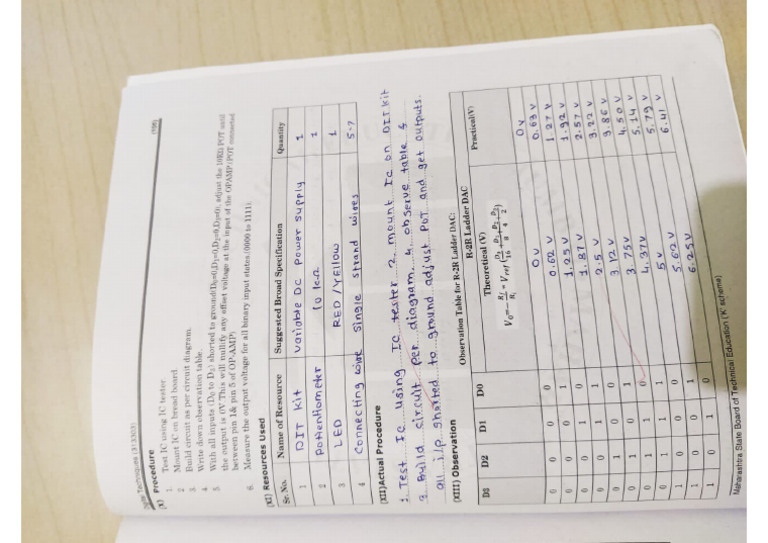 Digital Techniques (313303) (106)
(X) Procedure
1. Test IC using IC tester.
2. Mount IC on bread board.
3. Build circuit as per circuit diagram.
4. Write down observation table.
5. With all inputs (D0 to D3) shorted to ground(D0=0,D1=0,D2=0,D3=0), adjust the 10KΩ POT until
the output is 0V.This will nullify any offset voltage at the input of the OPAMP.(POT connected
between pin 1& pin 5 of OP-AMP)
6. Measure the output voltage for all binary input states (0000 to 1111).
(XI) Resources Used
Sr.No. Name of Resource Suggested Broad Specification Quantity
1 DIT Kit Variable DC Power Supply 1
2 Potentiometer 1
3 LED RED/YELLOW 1
4 connecting wire Single strand wires 5-7
(XII)Actual Procedure
1. Test Ic using Ic tester 2. mount Ic on DIT kit
3. Build circuit per diagram. 4. observe table 5.
all i/p shorted to ground adjust Pot and get outputs.
(XIII) Observation
Observation Table for R-2R Ladder DAC:
R-2R Ladder DAC
D3 D2 D1 D0 Theoretical (V) Practical(V)
0 0 0 0 0V 0V
0 0 0 1 0.62 V 0.63 V
0 0 1 0 1.25V 1.27 V
0 0 1 1 1.87 V 1.92 V
0 1 0 0 2.5 V 2.57 V
0 1 0 1 3.12 V 3.22 V
0 1 1 0 3.75V 3.86 V
0 1 1 1 4.37V 4.50 V
1 0 0 0 5V 5.14 V
1 0 0 1 5.62 V 5.79 V
1 0 1 0 6.25V 6.41 V
Maharashtra State Board of Technical Education ('K' scheme)